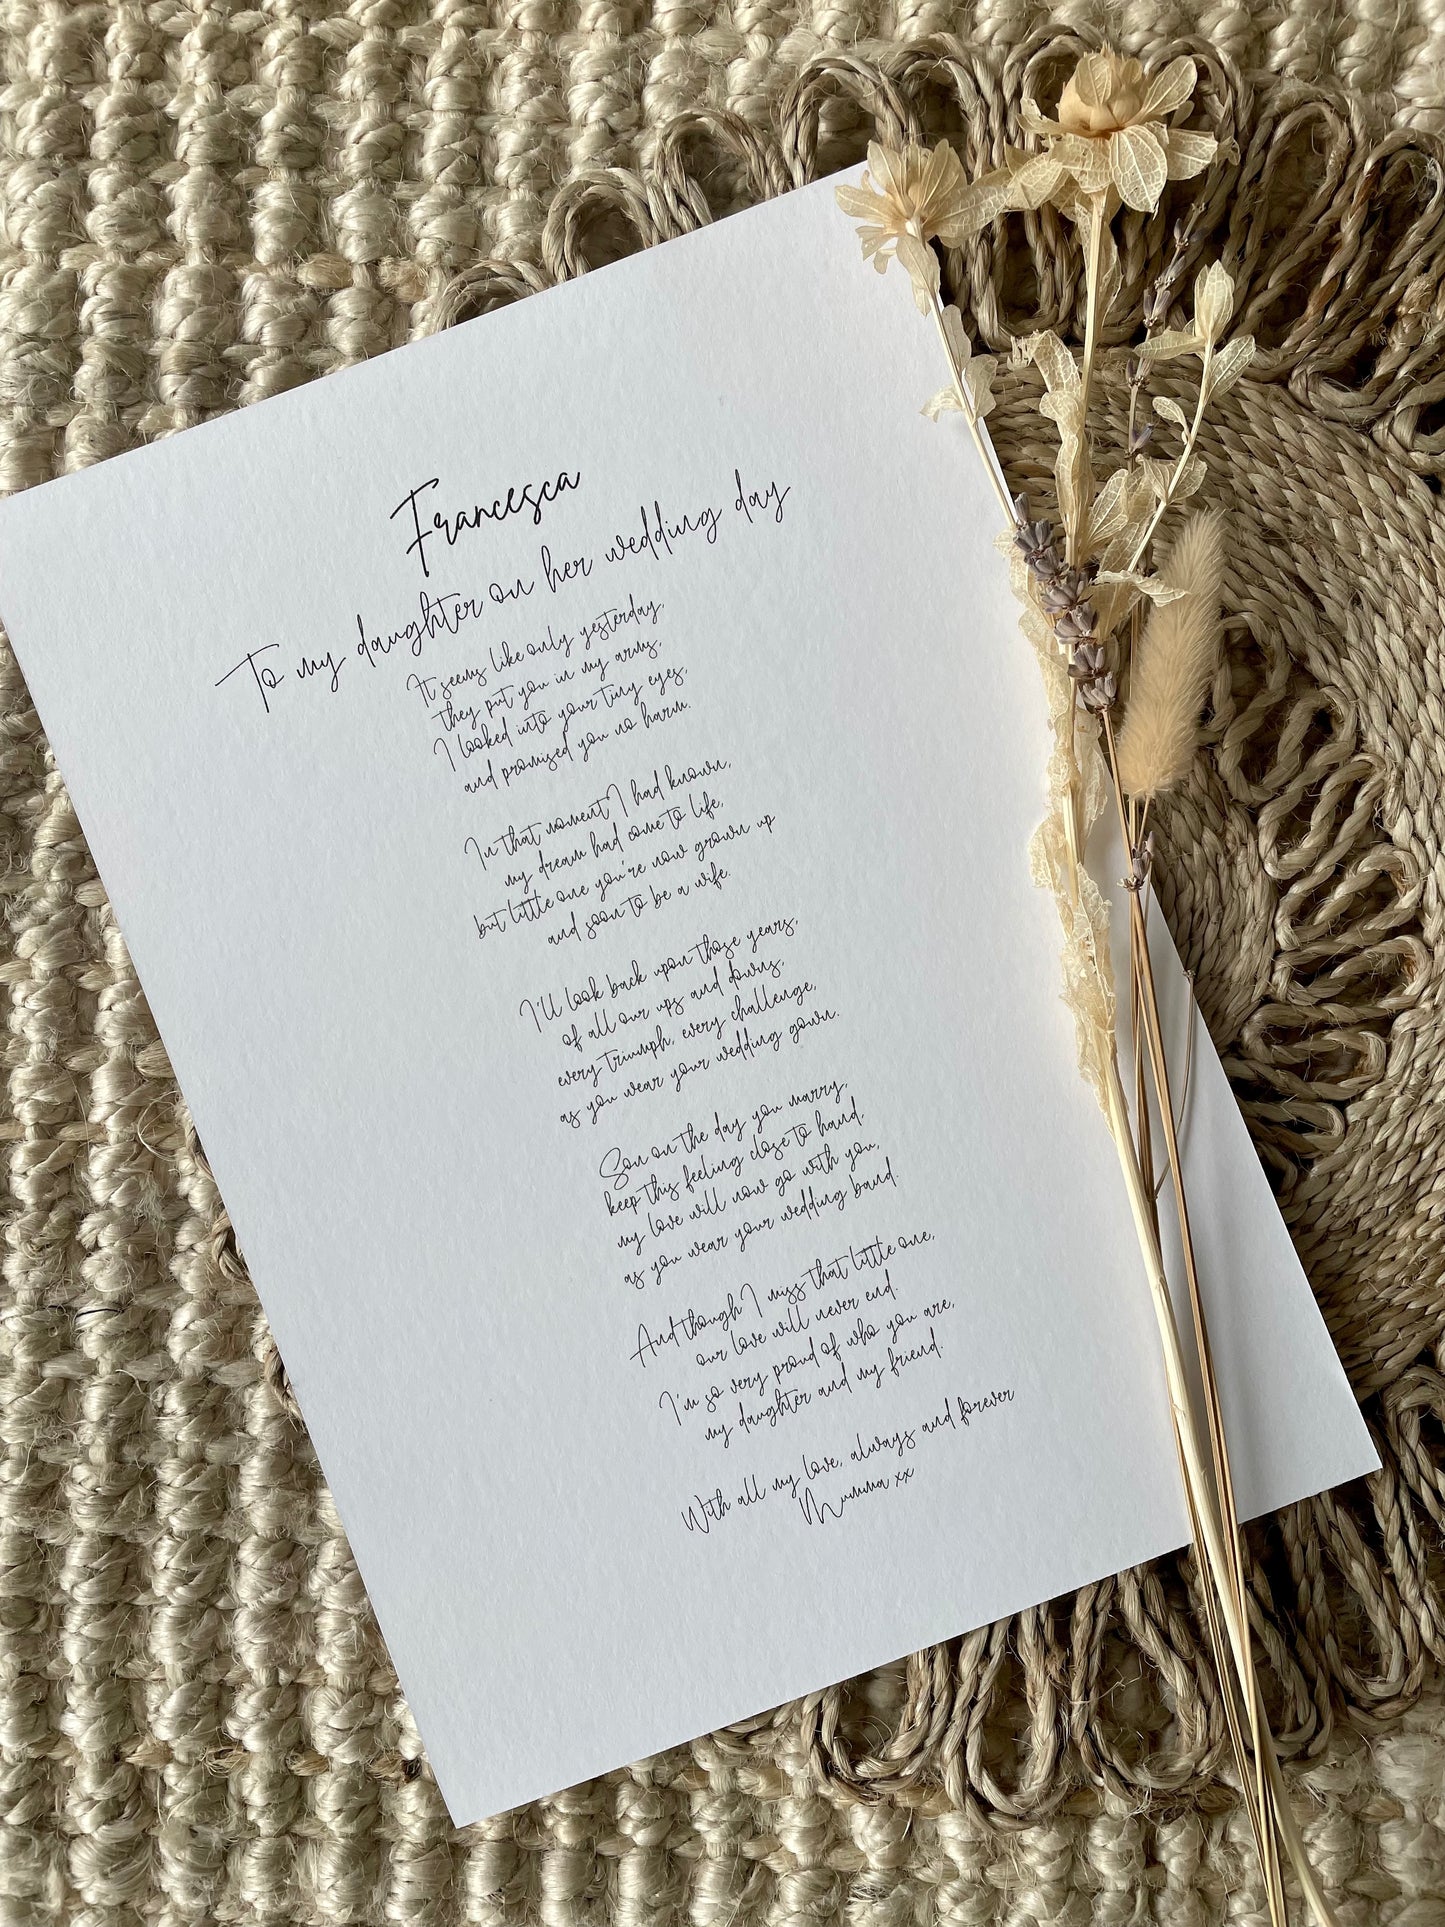 Francesca
To my daughter on her wedding day
It seems like only yesterday,
they put you in my arms,
I looked into your tiny eyes,
and promised you no harm.
In that moment I had known,
my dream had come to life,
but little one you're now grown up
and soon to be a wife.
I'll look back upon those years,
of all our ups and downs,
every triumph, every challenge,
as you wear your wedding gown.
Son on the day you marry,
keep this feeling close to hand,
my love will now go with you,
as you wear your wedding band.
And though I miss that little one,
our love will never end.
I'm so very proud of who you are,
my daughter and my friend.
With all my love, always and forever
Mumma xx